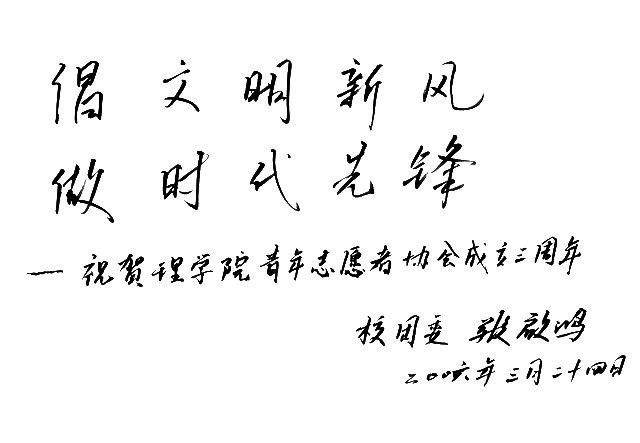 倡文明新风
做时代先锋
—祝贺理学院青年志愿者协会成立三周年
校团委 启鸣
二〇〇六年三月二十四日